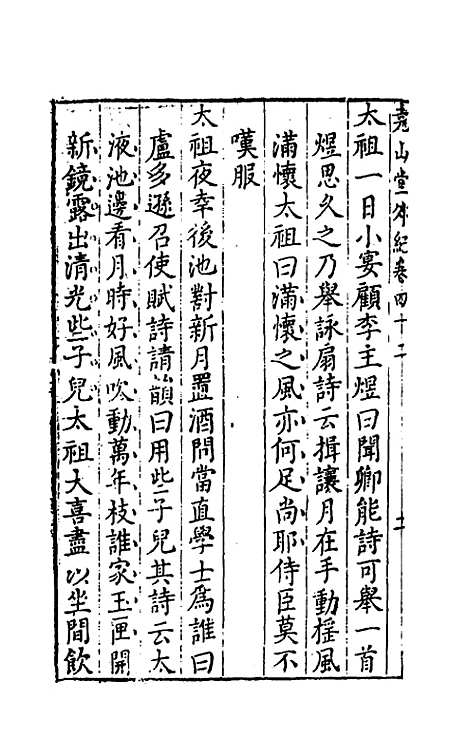 堯山堂外紀卷四十二
二
太祖一日小宴顧李主煜曰聞卿能詩可舉一首
煜思久之乃舉詠扇詩云揖讓月在手動揺風
滿懷太祖曰滿懷之風亦何足尚耶侍臣莫不
嘆服
太祖夜幸後池對新月置酒問當直學士爲誰曰
盧多遜召使賦詩請韻曰用些子兒其詩云太
液池邊看月時好風吹動萬年枝誰家玉匣開
新鏡露出清光些子兒太祖大喜盡以坐間飲